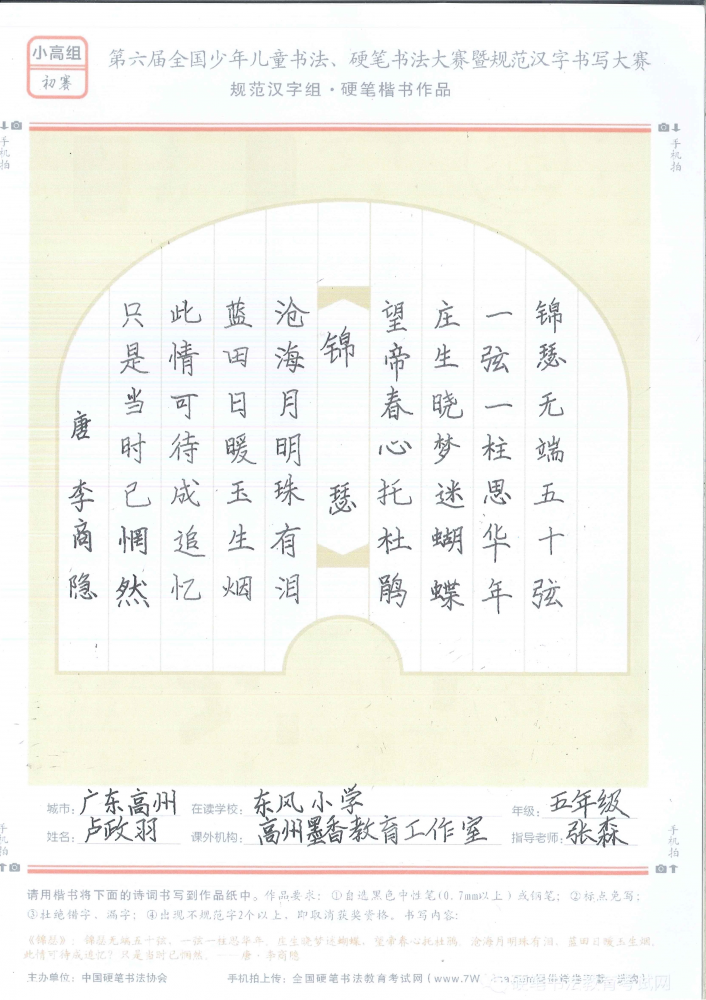 小高组
初赛
第六届全国少年儿童书法、硬笔书法大赛暨规范汉字书写大赛
规范汉字组·硬笔楷书作品
手机拍
手机拍
锦瑟无端五十弦
一弦一柱思华年
庄生晓梦迷蝴蝶
望帝春心托杜鹃
锦瑟
沧海月明珠有泪
蓝田日暖玉生烟
此情可待成追忆
只是当时已惘然
唐 李商隐
城市: 广东高州 在读学校: 东风小学 年级: 五年级
姓名: 卢政羽 课外机构: 高州墨香教育工作室 指导老师: 张森
手机拍
手机拍
请用楷书将下面的诗词书写到作品纸中。作品要求:①自选黑色中性笔(0.7mm以上)或钢笔;②标点免写;
③杜绝错字、漏字;④出现不规范字2个以上,即取消获奖资格。书写内容:
《锦瑟》:锦瑟无端五十弦,一弦一柱思华年。庄生晓梦迷蝴蝶,望帝春心托杜鹃。沧海月明珠有泪,蓝田日暖玉生烟。
此情可待成追忆?只是当时已惘然。——唐·李商隐
主办单位:中国硬笔书法协会 手机拍上传:全国硬笔书法教育考试网(www.7W
硬笔书法教育考试网